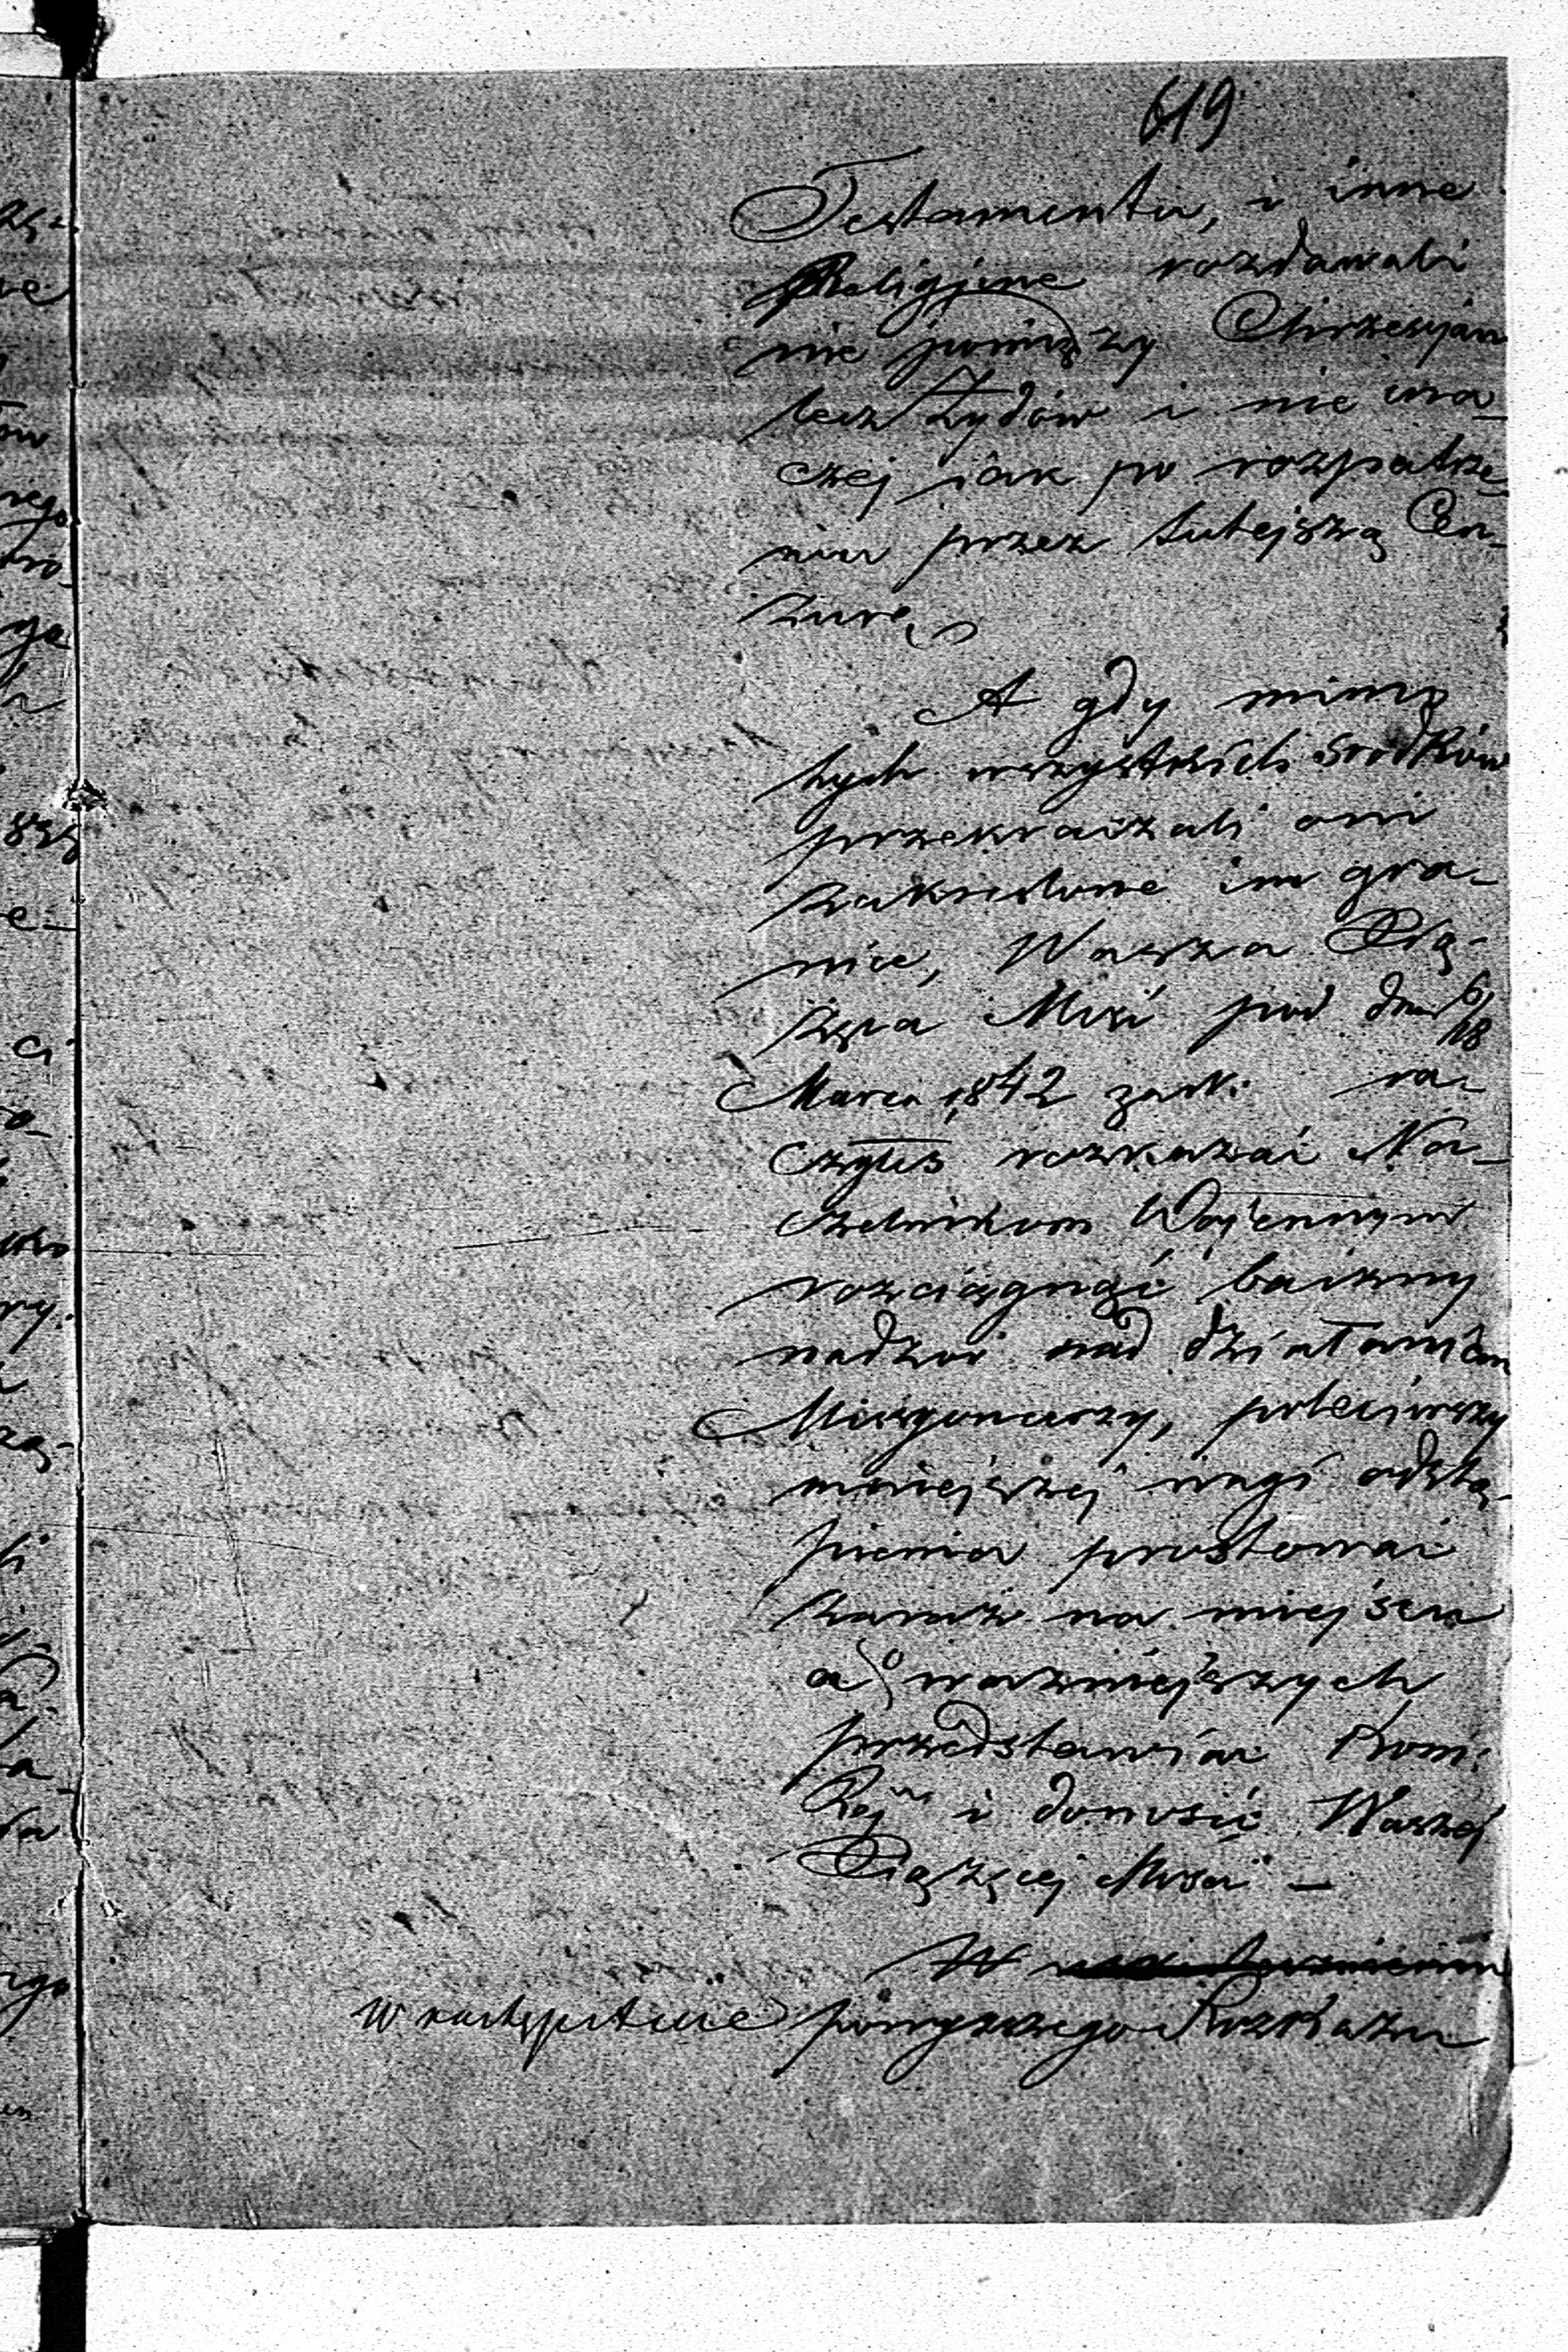 619
Testamentu, i inne
Religijne rozdawali
nie pomiędzy Chrześcjan
lecz Żydów i nie ina-
czej jak po rozpatrze-
niu przez tutejszą Cen-
zurę
A gdy mimo
tych wszystkich środków
przekraczali oni
zakreślone im gra-
nice, Wasza Xią-
żęca Mość pod dniem 6/18
Marca 1842 zaś. ra-
czyłeś rozkazać Na-
czelnikom Wojennym
rozciągnąć baczny
nadzór nad działaniem
Missyonarzy, poleciwszy
mniejszej wagi odstą-
pienia prostować
zaraz na miejscu
a o ważniejszych
przedstawiać Kom:
Rząj i donosić Waszej
Xiążęcej Mości —
W
w następstwie powyższego Rozkazu